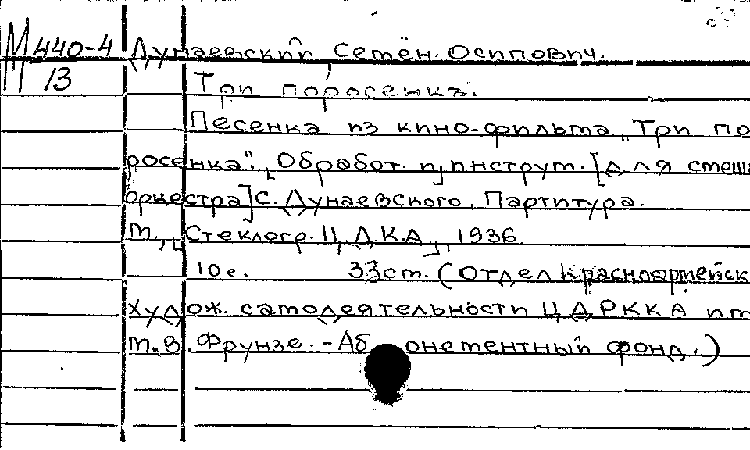 М 440-4 Дунаевский, Семён Осипович.
13 Три поросенка.
Песенка из кино-фильма "Три по
росенка". Обработ. и инструт. [для смеш
оркестра] С. Дунаевского. Партитура.
М., Стеклогр. Ц.Д.К.А., 1936.
10 с. 33 ст. (Отдел красноармейск
худож. самодеятельности ЦДРККА им
М.В. Фрунзе. - Аб онементный фонд.)